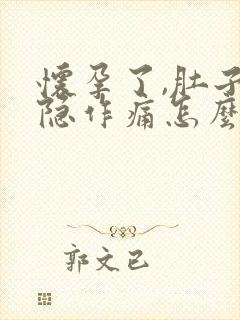 懷孕了,肚子
隐作痛怎麼
郭文已